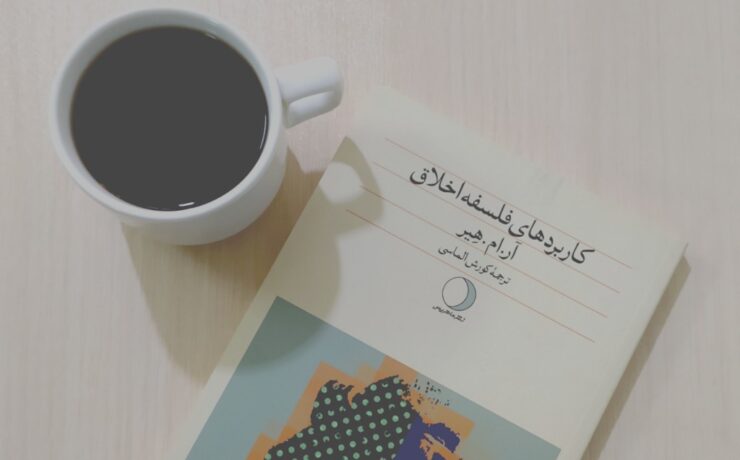 کاربردهای فلسفه اخلاق
آر. ام. هیر
ترجمهٔ کورش الماسی